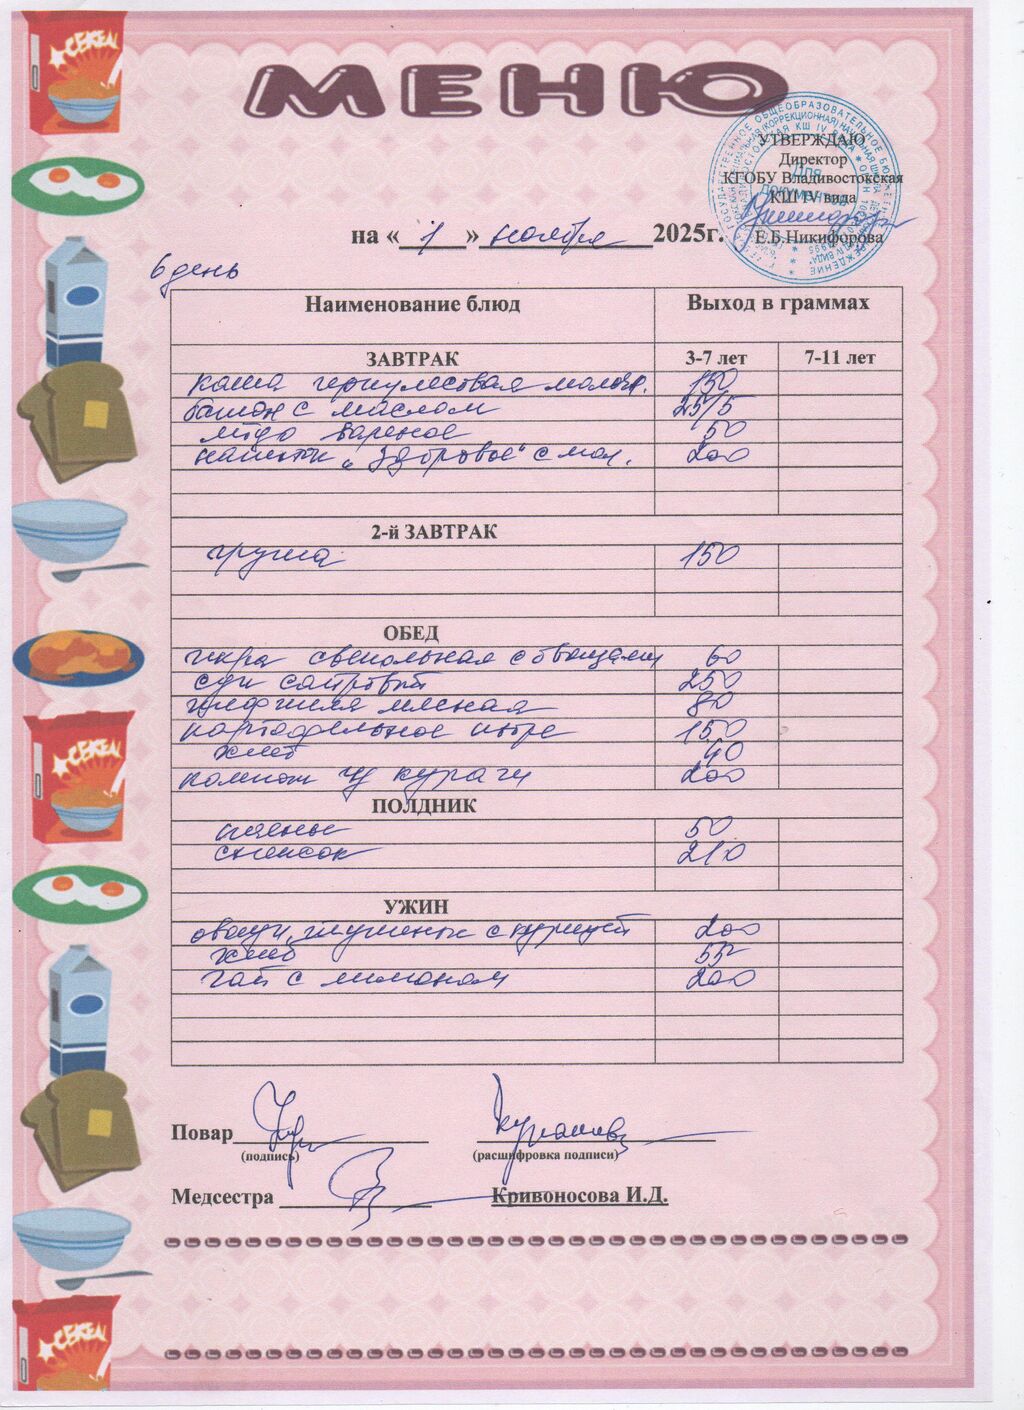 CEREAL
МЕНЮ
УТВЕРЖДАЮ
Директор
КГОБУ Владивостокская
КШ IV вида
Е.Б.Никифорова
Для документов
на « 1 » ноября 2025г.
6 день
Наименование блюд Выход в граммах
ЗАВТРАК 3-7 лет 7-11 лет
каша геркулесовая молочн. 150
батон с маслом 25/5
яйцо вареное 50
напиток „Здоровье" с мол. 200
2-й ЗАВТРАК
груша 150
ОБЕД
икра свекольная с овощами 60
суп 250
мясная 80
картофельное пюре 150
хлеб 40
компот из кураги 200
ПОЛДНИК
CEREAL
50
снежок 210
УЖИН
овощи, тушеные с курицей 200
хлеб 55
чай с лимоном 200
Повар
(подпись) (расшифровка подписи)
Медсестра Кривоносова И.Д.
CEREAL